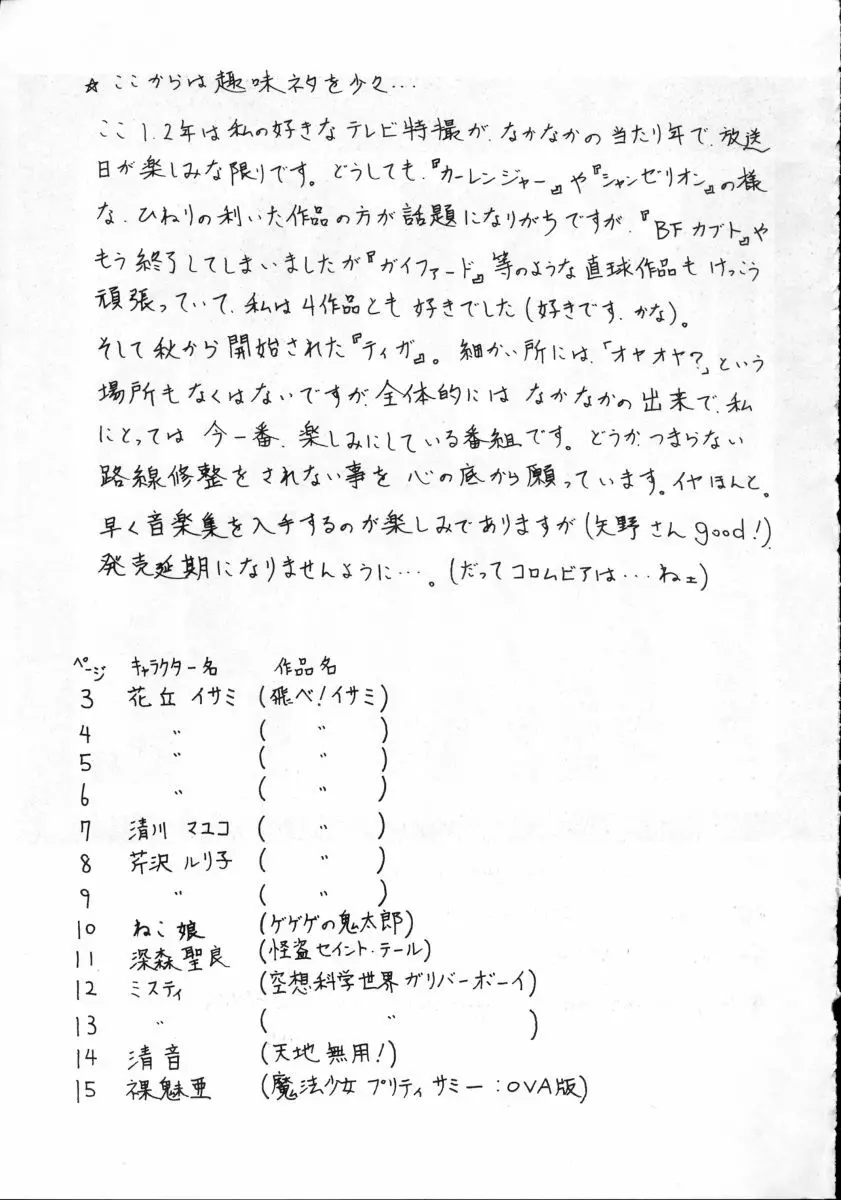 ☆ここからは趣味ネタを少々…
ここ1.2年は私の好きなテレビ特撮が、なかなかの当たり年で、放送
日が楽しみな限りです。どうしても、『カーレンジャー』や『シャンゼリオン』の様
な、ひねりの利いた作品の方が話題になりがちですが、『BFカブト』や
もう終了してしまいましたが『ガイファード』等のような直球作品もけっこう
頑張っていて、私は4作品とも好きでした(好きです、かな)。
そして秋から開始された『ティガ』。細かい所には、「オヤオヤ?」という
場所もなくはないですが、全体的にはなかなかの出来で、私
にとっては今一番、楽しみにしている番組です。どうか、つまらない
路線修整をされない事を心の底から願っています。イヤほんと。
早く音楽集を入手するのが楽しみでありますが(矢野さんgood!)
発売延期になりませんように…。(だってコロムビアは…ねェ)
ページ キャラクター名 作品名
3 花丘イサミ (飛べ!イサミ)
4 〃 (〃)
5 〃 (〃)
6 〃 (〃)
7 清川マユコ (〃)
8 芹沢ルリ子 (〃)
9 〃 (〃)
10 ねこ娘 (ゲゲゲの鬼太郎)
11 深森聖良 (怪盗セイント・テール)
12 ミスティ (空想科学世界ガリバーボーイ)
13 〃 (〃)
14 清音 (天地無用!)
15 裸魅亜 (魔法少女プリティサミー:OVA版)